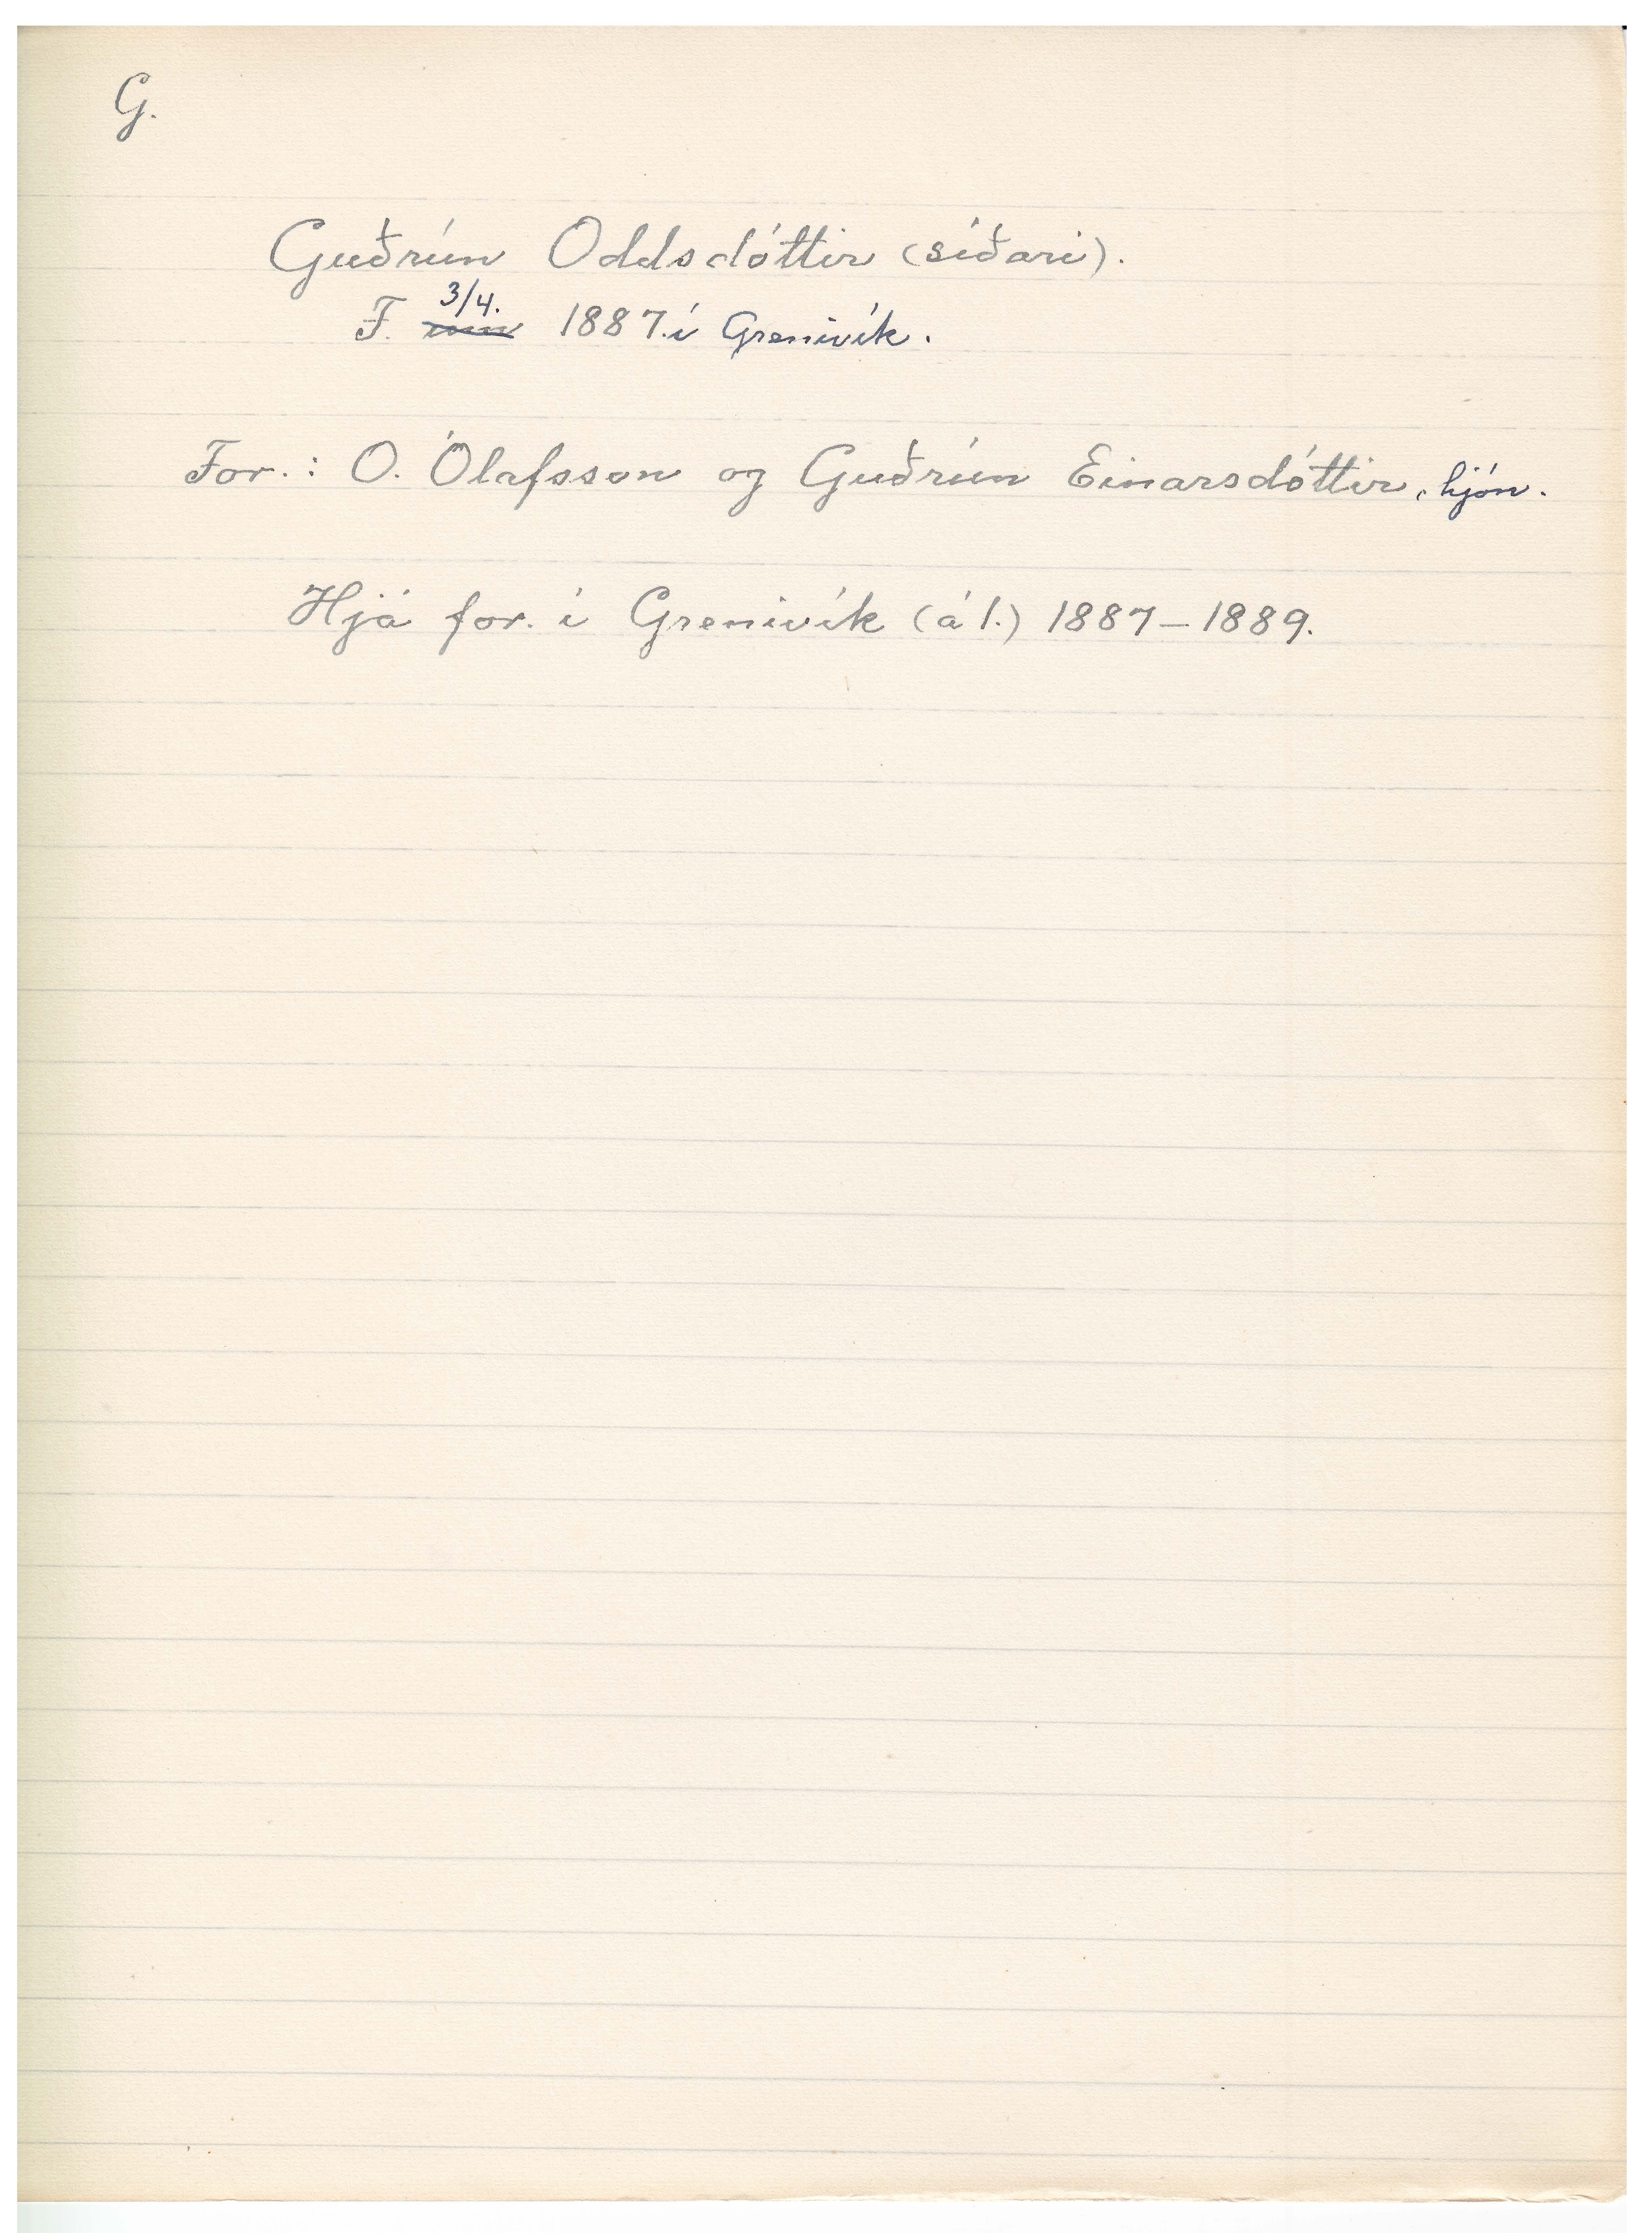 G.
Guðrún Oddsdóttir (síðari).
F. 3/4. 1887. í Grenivík.
For.: O. Ólafsson og Guðrún Einarsdóttir, hjón.
Hjá for. í Grenivík (á l.) 1887-1889.